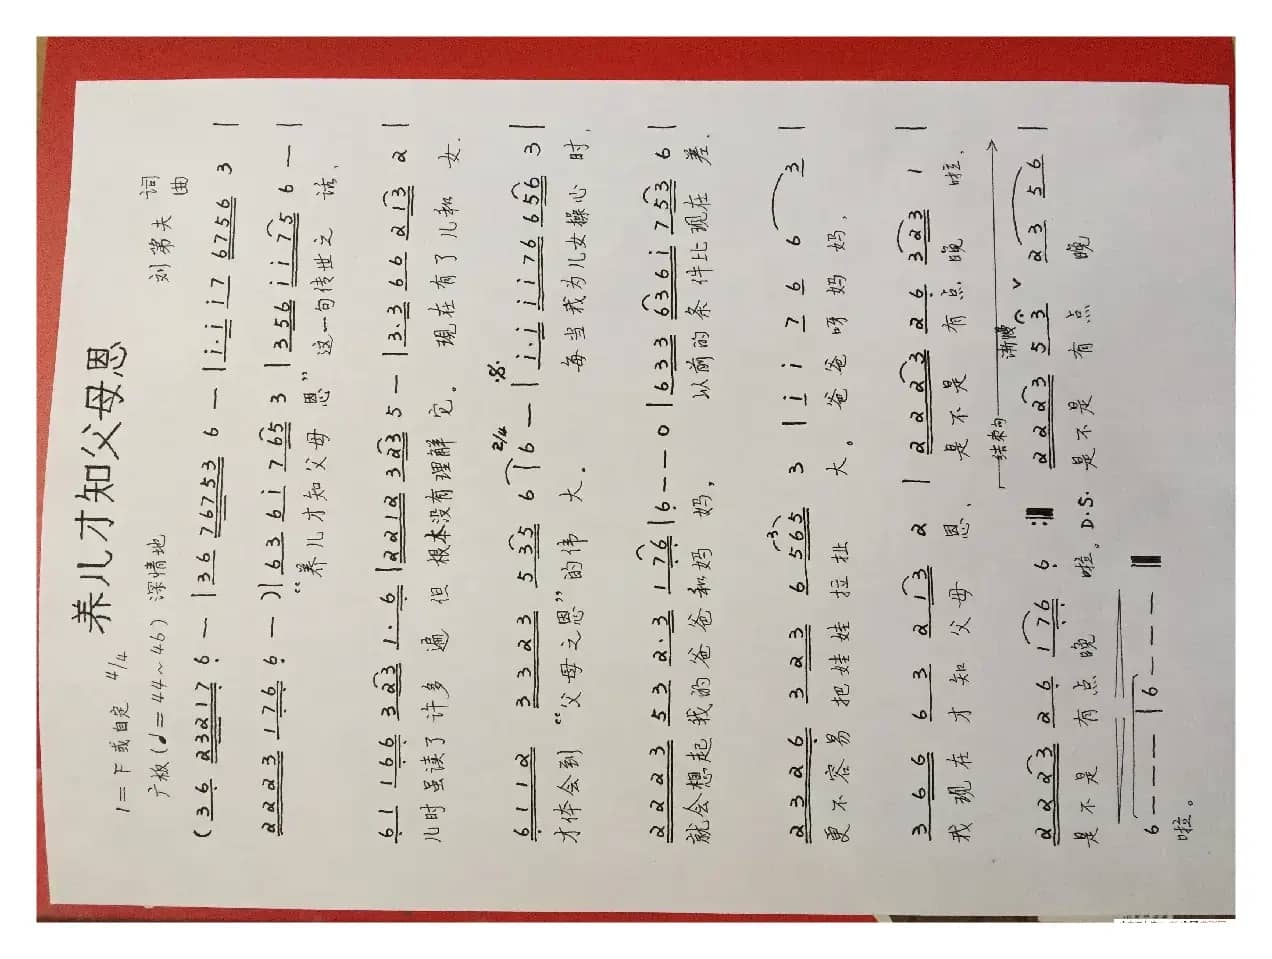 养儿才知父母恩
1=F或自定 4/4
刘第夫 词曲
广板(♩=44~46) 深情地
(3 6 2 3 2 1 7 6 — | 3 6 7 6 7 5 3 6 — | i· i i 7 6 7 5 6 3 |
2 2 2 3 1 7 6 6 — ) | 6 3 6 i 7 6 5 3 | 3 5 6 i i 7 5 6 — |
“养儿才知父母恩” 这一句传世之话,
6 1 1 6 6 3 2 3 1· 6 | 2 2 1 2 3 2 3 5 — | 3· 3 6 6 2 1 3 2 |
儿时虽读了许多遍但根本没有理解它。 现在有了儿和女.
6 1 1 2 3 3 2 3 5 3 5 6 | 2/4 6 — | i· i i i 7 6 6 5 6 3 |
才体会到 “父母之恩”的伟大。 每当我为儿女操心时,
2 2 2 3 5 3 2· 3 1 7 6 | 6 — — 0 | 6 3 3 6 3 6 i 7 5 3 6 |
就会想起我的爸爸和妈妈, 以前的条件比现在差.
2 3 2 6 3 2 3 6 5 6 5 3 | i i i 7 6 6 3 |
更不容易把娃娃拉扯大。爸爸呀妈妈妈,
3 6 6 6 3 2 1 3 2 | 2 2 2 3 2 6 3 2 3 1 |
我现在才知父母恩, 是不是有点晚啦,
结束句 渐慢
2 2 2 3 2 6 1 7 6 6 :‖ 2 2 2 3 5 3 ∨ 2 3 5 6 |
是不是有点晚啦。D.S. 是不是有点晚
6 — — — | 6 — — — ‖
啦。